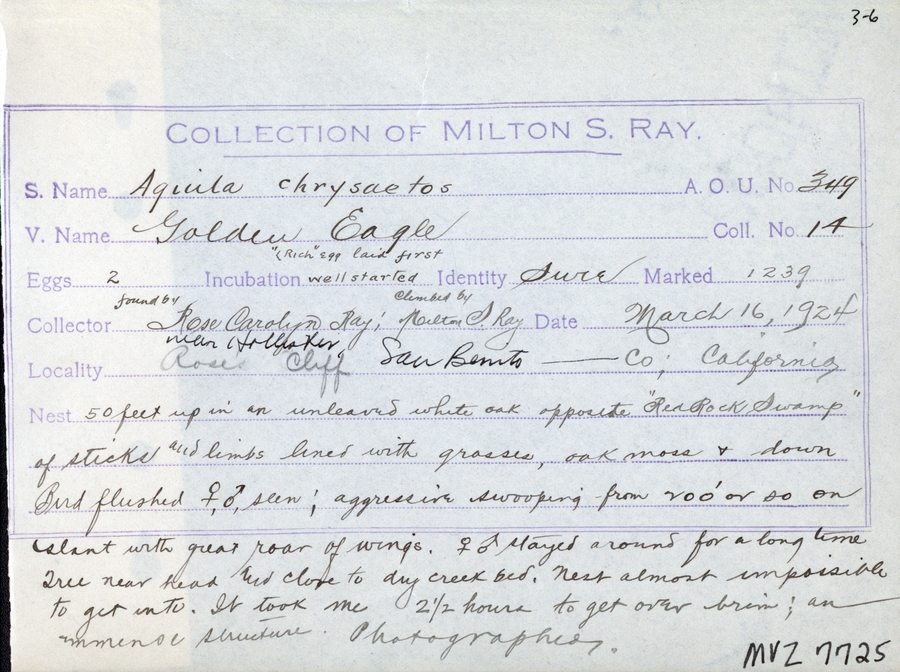 3-6
COLLECTION OF MILTON S. RAY.
S. Name Aquila chrysaetos A. O. U. No. 349
V. Name Golden Eagle Coll. No. 14
"Rich" egg laid first
Eggs 2 Incubation well started Identity Sure Marked 1239
found by climbed by
Collector Rose Carolyn Ray; Milton S. Ray Date March 16, 1924
near Hollister,
Locality Rose's Cliff San Benito Co; California
Nest 50 feet up in an unleaved white oak opposite "Red Rock Swamp"
of sticks and limbs lined with grasses, oak moss & down
Bird flushed ♀, ♂, seen; aggressive swooping from 200' or so on
slant with great roar of wings. ♀ ♂ stayed around for a long time
Tree near head and close to dry creek bed. Nest almost impossible
to get into. It took me 2½ hours to get over brim; an
immense structure. Photographed.
MVZ 7725